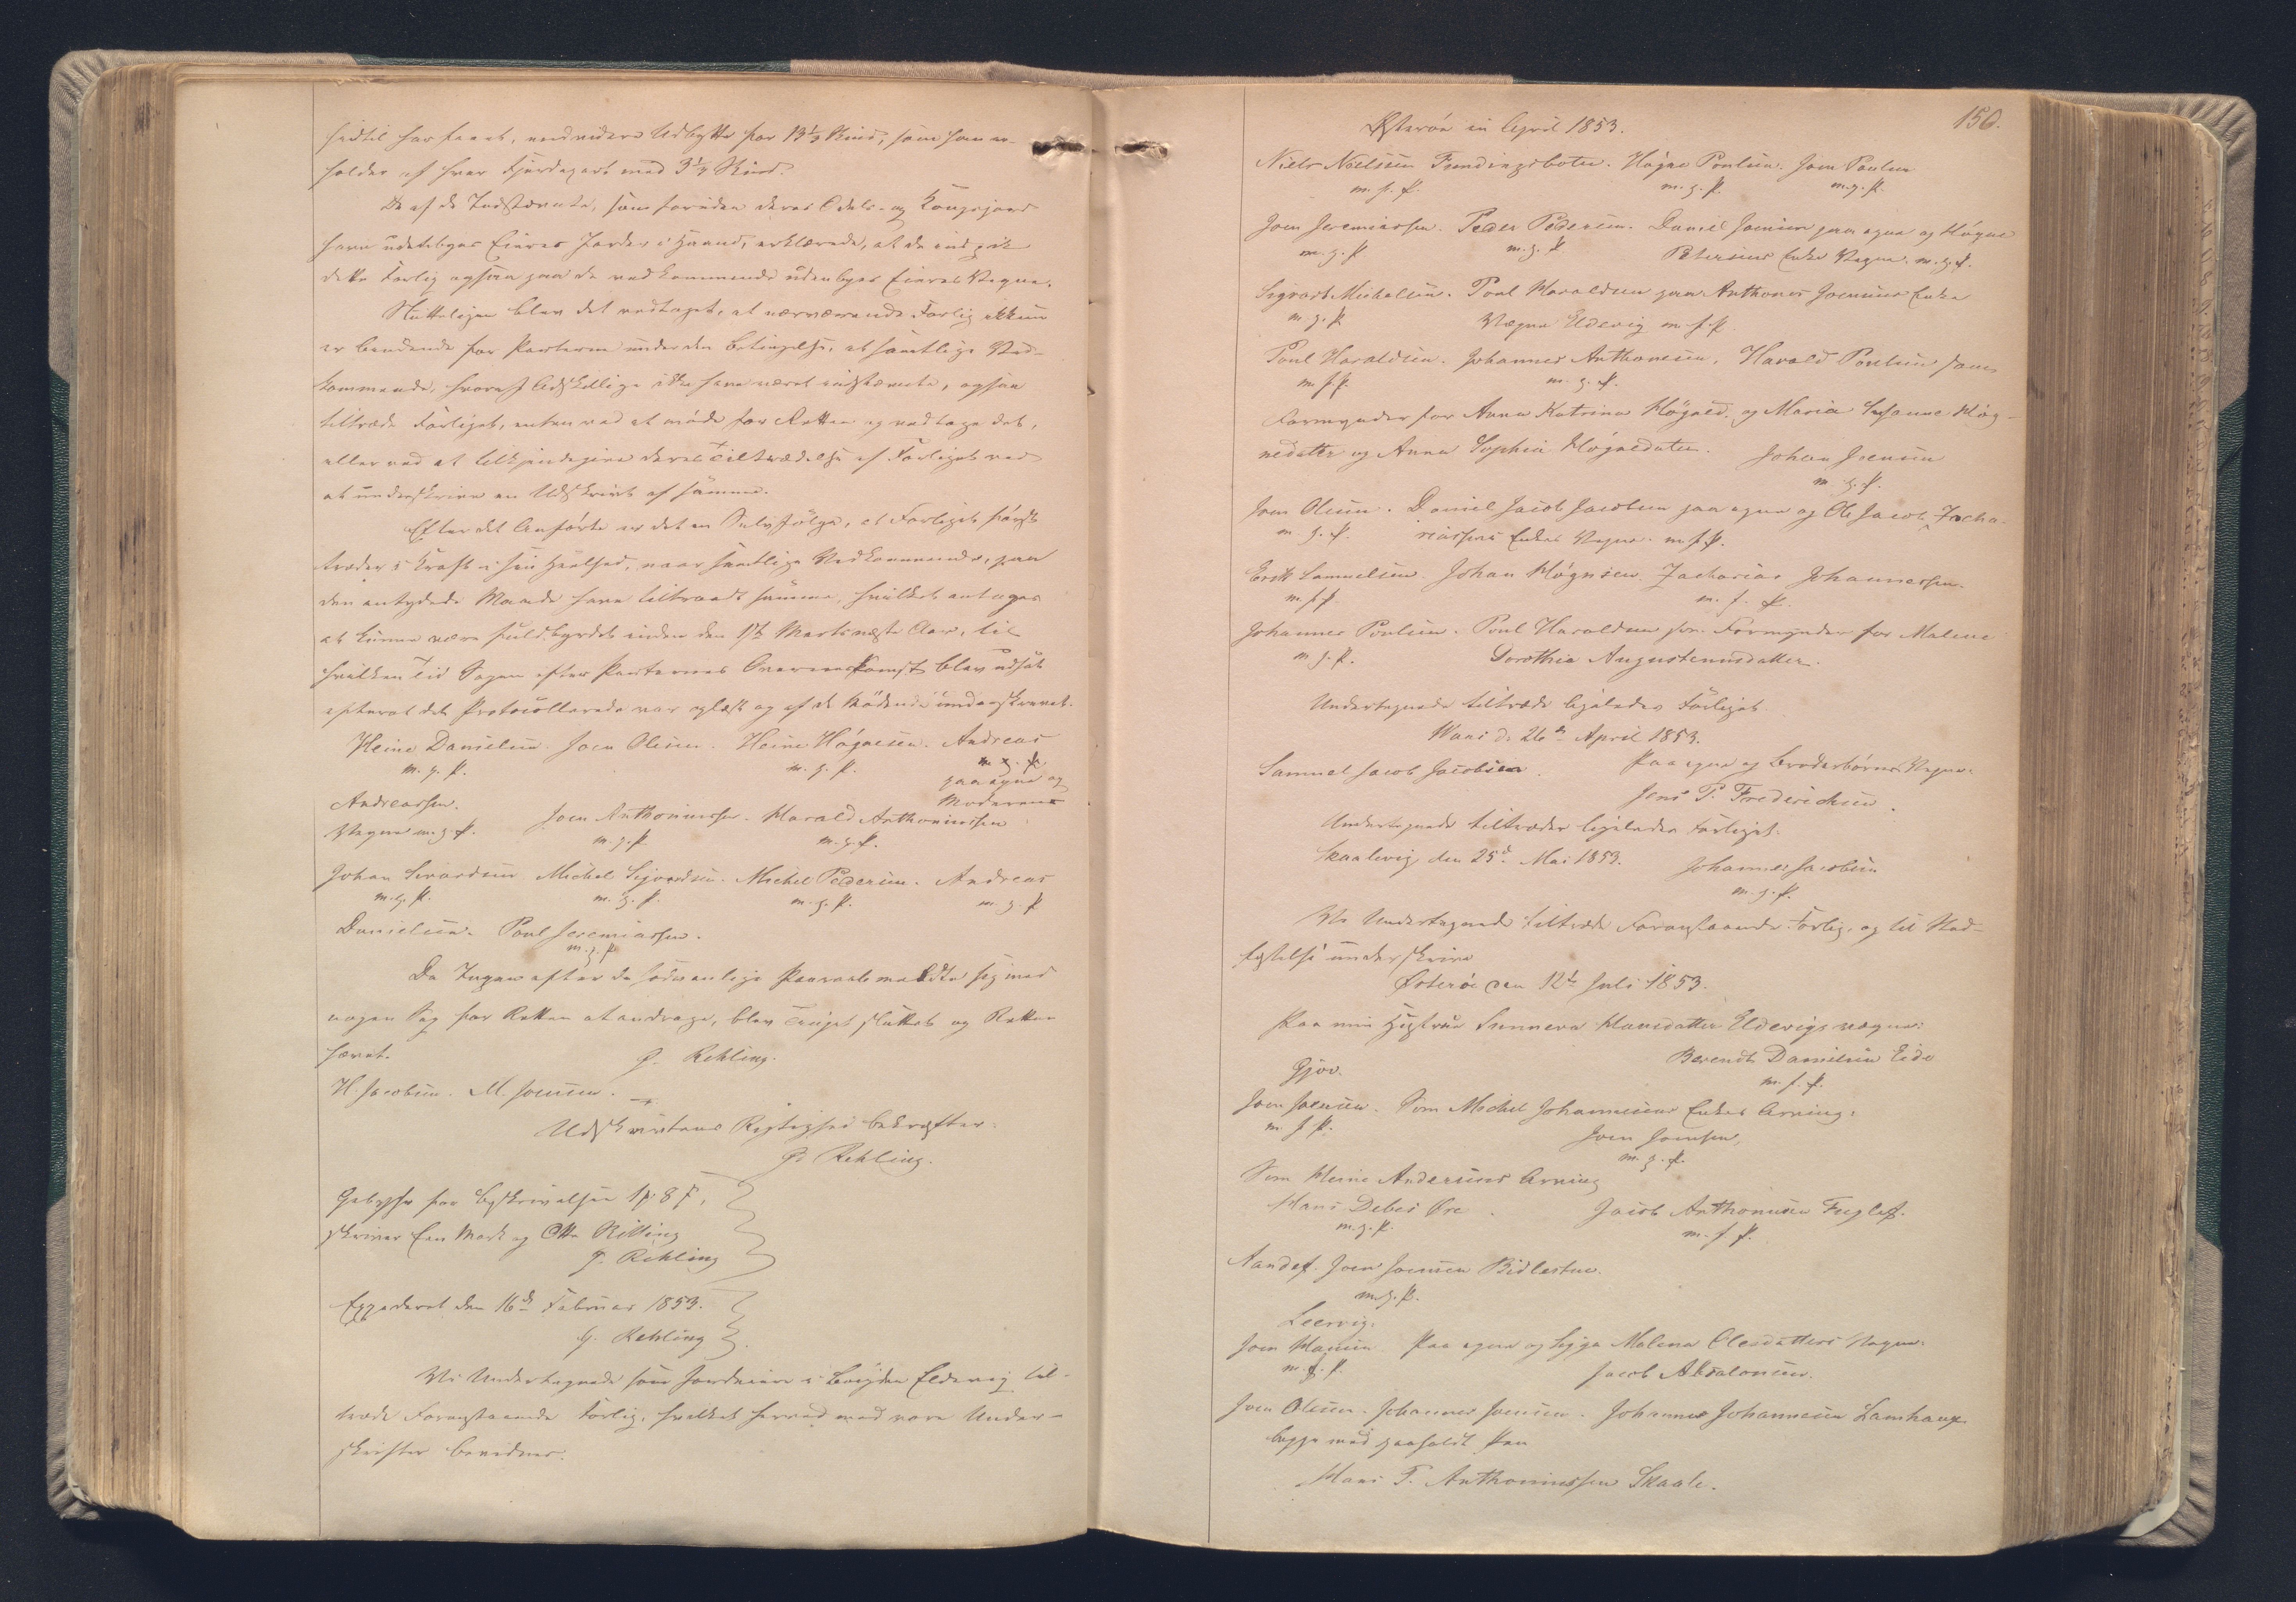 hidtil har havt, med videre Udbytte for 13 1/3 Skind, som han er-
holder af hver Fjerdepart med 3 1/3 Skind.
De af de Indstævnte, som foruden deres Odels- og Kongsjord
have udenbyges Eieres Jorder i Haand, erklærede, at de indgik
dette Forlig ogsaa paa de vedkommende udenbyges Eieres Vegne.
Sluttelig blev det vedtaget, at nærværende Forlig ikkun
er bindende for Parterne under den Betingelse, at samtlige Ved-
kommende, hvoraf Adskillige ikke have været indstævnte, ogsaa
tiltræde Forliget, enten ved at møde for Retten og vedtage det,
eller ved at tilkjendegive deres Tiltrædelse af Forliget ved
at underskrive en Udskrivt af samme.
Efter det Anførte er det en Selvfølge, at Forliget først
træder i Kraft i sin Heelhed, naar samtlige Vedkommende, paa
den antydede Maade have tiltraadt samme, hvilket antages
at kunne være fuldbyrdet inden den 1ste Marts næste Aar, til
hvilken Tid Sagen efter Parternes Overeenskomst blev udsat
efterat det Protocollerede var oplæst og af de Mødende underskrevet.
Heine Danielsen. Joen Olesen. Heine Høgnesen. Andreas
m. p. P. m. p. P. m. p. P.
paa egne og
Andreassen. Joen Anthoniussen. Harald Anthoniussen Moderens
Vegne m. p. P. m. p. P. m. p. P.
Johan Sivardsen Michel Sigvardsen. Michel Pedersen. Andreas
m. p. P. m. p. P. m. p. P. m. p. P.
Danielsen. Poul Jeremiassen.
m. p. P.
Da Ingen efter de sædvanlige Paaraab meldte sig med
nogen Sag for Retten at andrage, blev Thinget sluttet og Retten
hævet. G. Rehling.
H. Jacobsen. M. Joensen.
Udskrivtens Rigtighed bekræfter.
G. Rehling.
Gebyhr for Beskrivelsen 1 # 8 ß,
skriver Een Mark og Otte Skilling
G. Rehling
Expederet den 16de Februar 1853.
G. Rehling
Vi Undertegnede som Jordeiere i Bøigden Eldevig til-
træde Foranstaaende Forlig, hvilket herved med vore Under-
skrifter bevidnes.
156.
Østerøe in April 1853.
Niels Nielsen Fundingsboten. Høgne Poulsen. Joen Poulsen
m. p. P. m. p. P. m. p. P.
Joen Jeremiassen. Peder Pedersen. Daniel Joensen paa egne og Høgne
m. p. P. m. p. P. Petersens Enkes Vegne. m. p. P.
Sigvard Michelsen. Poul Haraldsen paa Anthonis Joensens Enkes
m. p. P. Vegne Eldevig m. p. P.
Poul Haraldsen. Johannes Anthonesen. Harald Poulsen som
m. p. P. m. p. P.
Formynder for Anna Katrina Høgned. og Maria Susanne Høg-
nedatter og Anna Sophia Høgnedatter. Johan Joensen
m. p. P.
Joen Olesen. Daniel Jacob Jacobsen paa egne og Ole Jacob Zacha-
m. p. P. riassens Enkes Vegne. m. p. P.
Erik Samuelsen. Johan Høgnesen. Zacharias Johannessen.
m. p. P. m. p. P.
Johannes Poulsen. Poul Haraldsen som Formynder for Malene
m. p. P. Dorothia Augustenusdatter.
Undertegnede tiltræde ligeledes Forliget.
Waas d. 26de April 1853.
Samuel Jacob Jacobsen. Paa egne og Broderbørns Vegne.
Jens P. Frederichsen.
Undertegnede tiltræder ligeledes Forliget.
Skaalevig den 25de Mai 1853. Johannes Jacobsen
m. p. P.
Vi Undertegnede tiltræde Foranstaaende Forlig, og til Stad-
fæstelse underskrive
Østerøe den 12te Juli 1853.
Paa min Hustrue Sunneva Hansdatter Eldevigs vegne:
Berendt Danielsen Eide
Gjov. m. p. P.
Joen Joensen. Som Michel Johannesens Enkes Arving:
m. p. P. Joen Joensen,
m. p. P.
Som Heine Andersens Arving
Hans Debes Øre. Jacob Anthonesen Fuglef.
m. p. P. m. p. P.
Andef. Joen Joensen Bidlesten.
m. p. P.
Leervig.
Joen Hansen Paa egne og Syge Malena Olesdatters Vegne.
m. p. P. Jacob Absalonsen.
Joen Olesen. Johannes Joensen. Johannes Johannesen Lamhauge
begge med paaholdt Pen
Hans F. Anthoniussen Skaale.